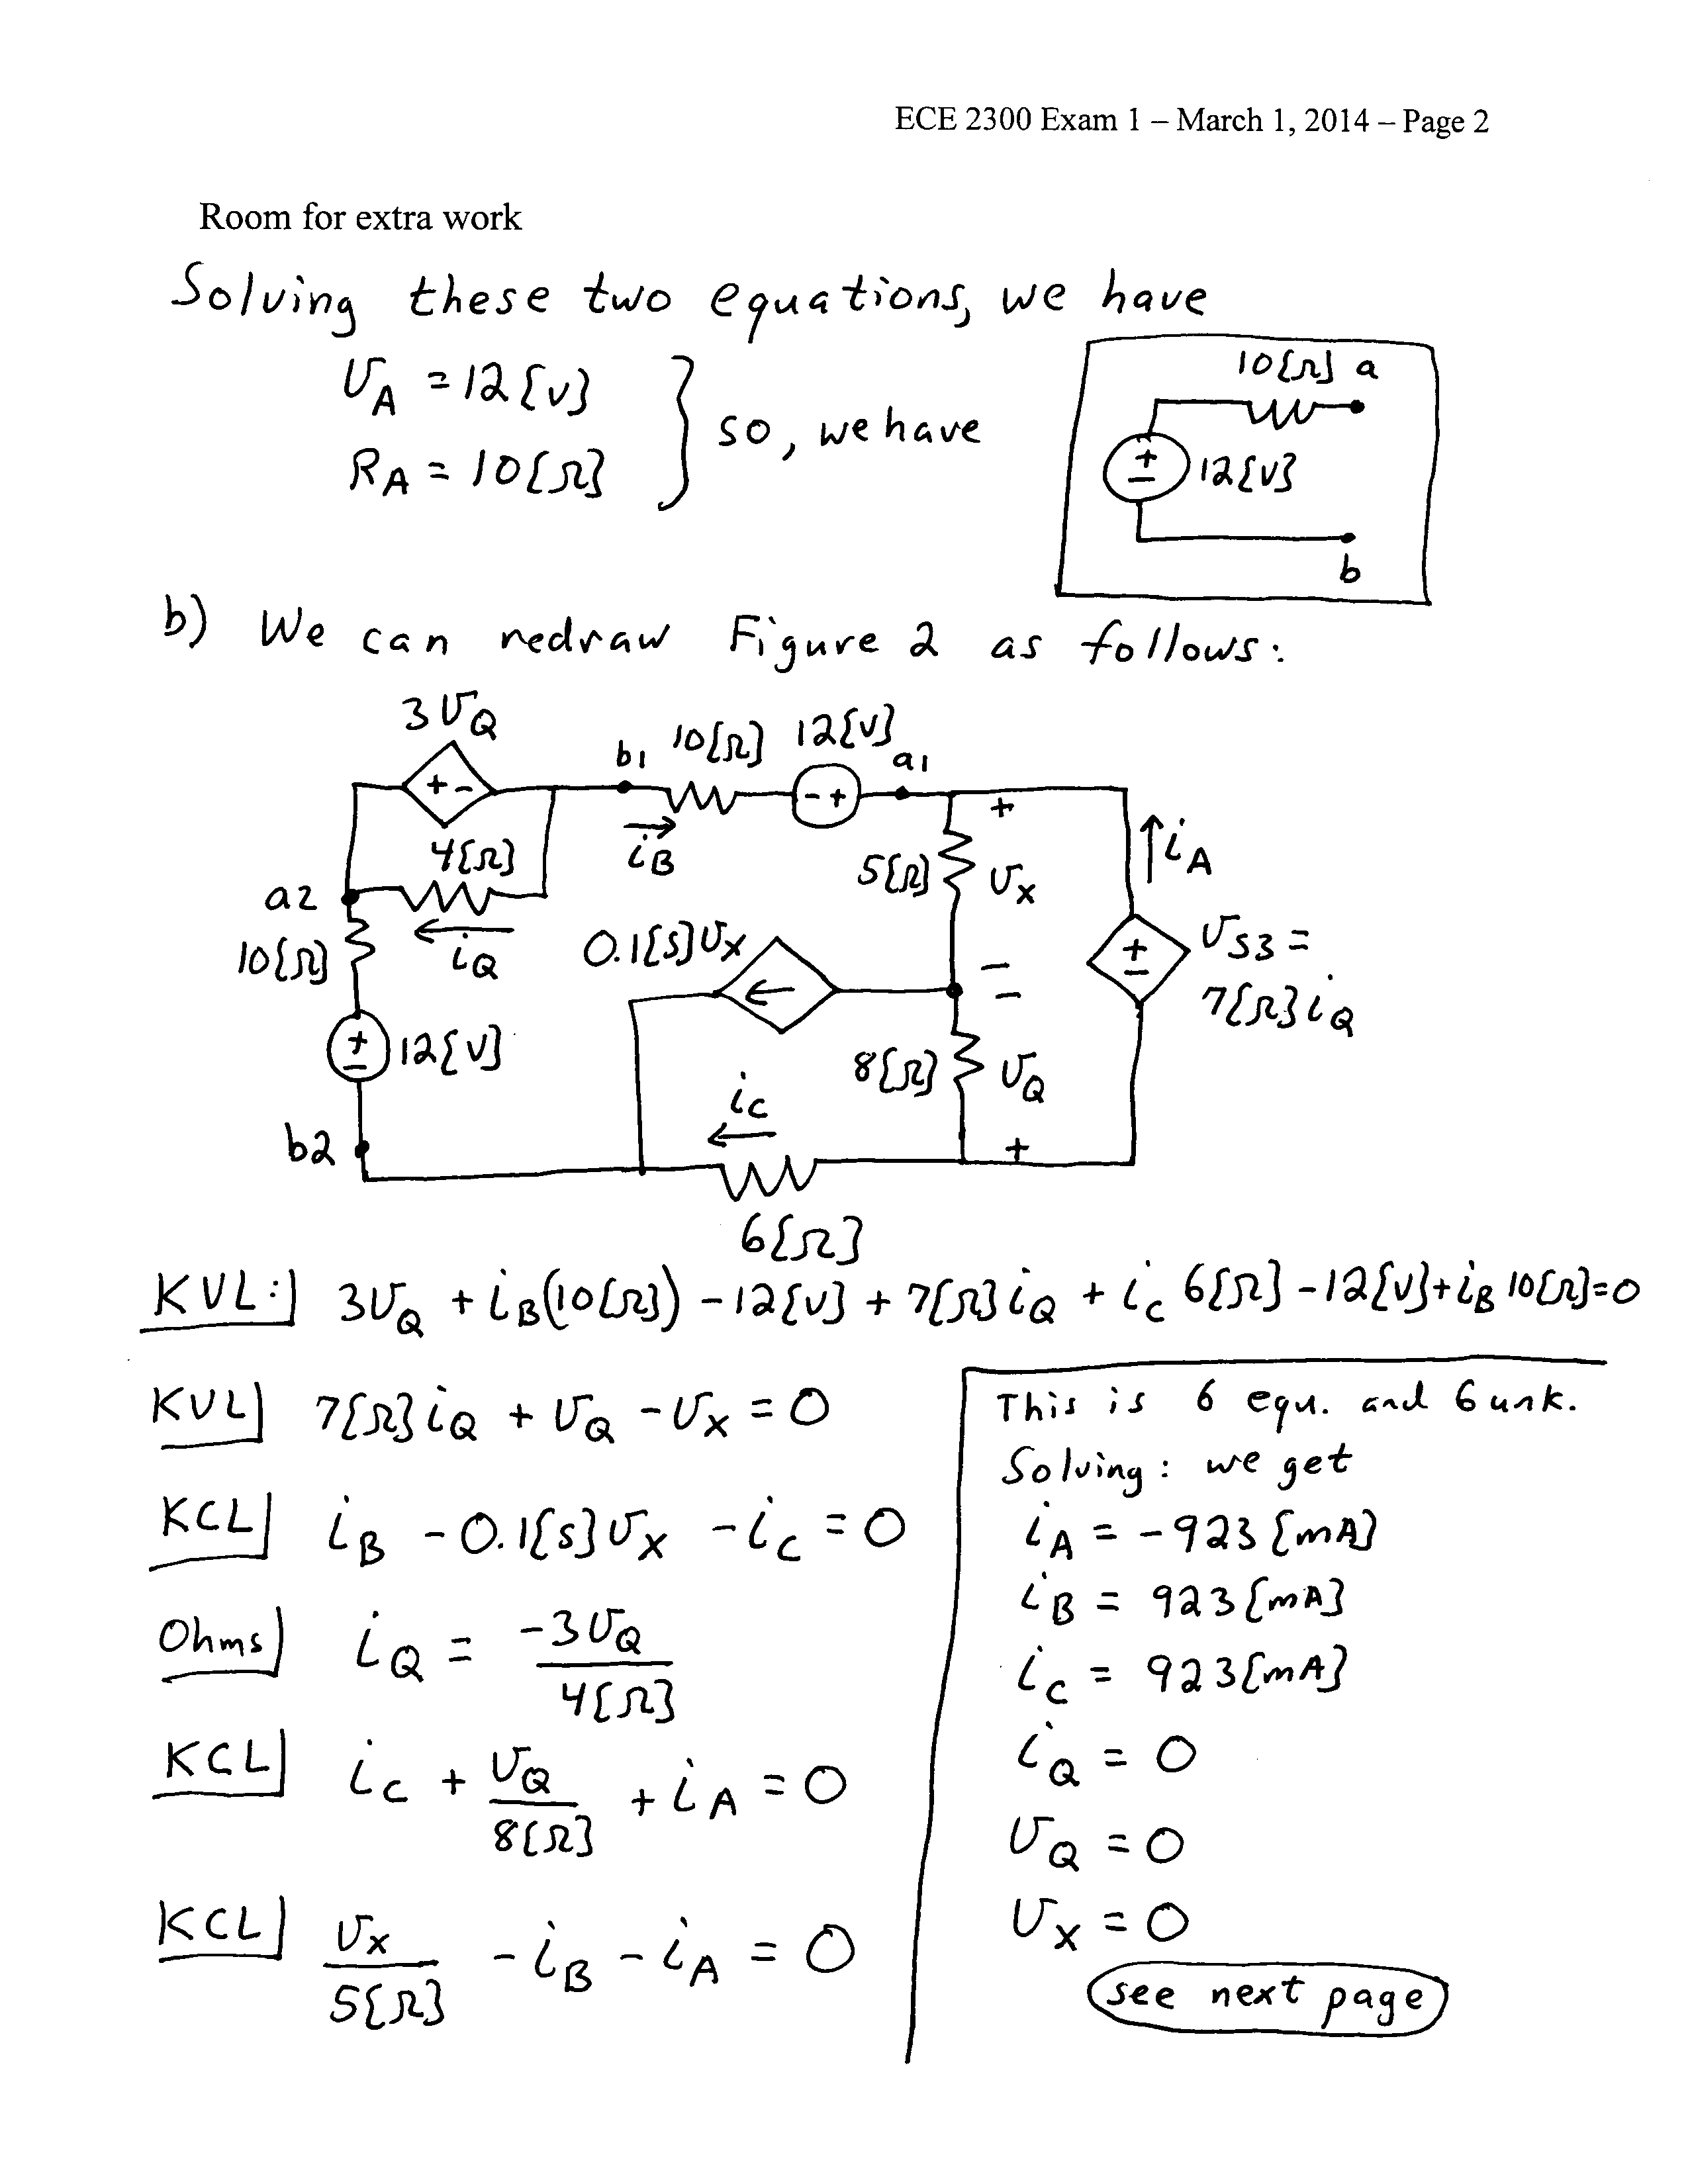 ECE 2300 Exam 1 – March 1, 2014 – Page 2
Room for extra work
Solving these two equations, we have
v_A = 12[V]
R_A = 10[Ω]
} so, we have
10[Ω] a
+
−
12[V]
b
b) We can redraw Figure 2 as follows:
3v_Q
+ −
b1 10[Ω] 12[V] a1
− +
i_B
4[Ω]
a2
i_Q
10[Ω]
+
−
12[V]
b2
5[Ω]
+
v_X
−
i_A
0.1[S]v_X
+
−
v_S3 =
7[Ω]i_Q
8[Ω]
−
v_Q
+
i_C
6[Ω]
KVL:] 3v_Q + i_B(10[Ω]) − 12[V] + 7[Ω]i_Q + i_C 6[Ω] − 12[V] + i_B 10[Ω] = 0
KVL] 7[Ω]i_Q + v_Q − v_X = 0
KCL] i_B − 0.1[S]v_X − i_C = 0
Ohms] i_Q = −3v_Q / 4[Ω]
KCL] i_C + v_Q / 8[Ω] + i_A = 0
KCL] v_X / 5[Ω] − i_B − i_A = 0
This is 6 equ. and 6 unk.
Solving: we get
i_A = −923[mA]
i_B = 923[mA]
i_C = 923[mA]
i_Q = 0
v_Q = 0
v_X = 0
see next page